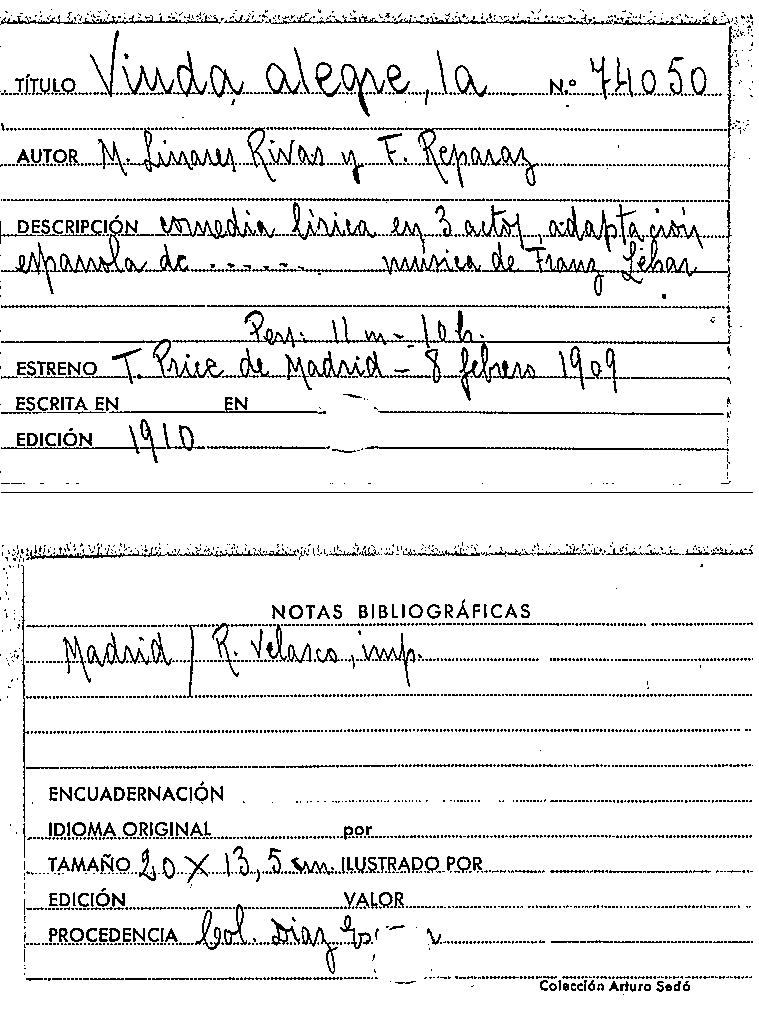 TÍTULO Viuda alegre, la N.º 74050
AUTOR M. Linares Rivas y F. Reparaz
DESCRIPCIÓN comedia lírica en 3 actos, adaptación
española de ------ música de Franz Léhar
Pers: 11 m - 10 h.
ESTRENO T. Price de Madrid - 8 febrero 1909
ESCRITA EN EN
EDICIÓN 1910
NOTAS BIBLIOGRÁFICAS
Madrid / R. Velasco, imp.
ENCUADERNACIÓN
IDIOMA ORIGINAL por
TAMAÑO 20 X 13,5 cm. ILUSTRADO POR
EDICIÓN VALOR
PROCEDENCIA Col. Díaz
Colección Arturo Sedó